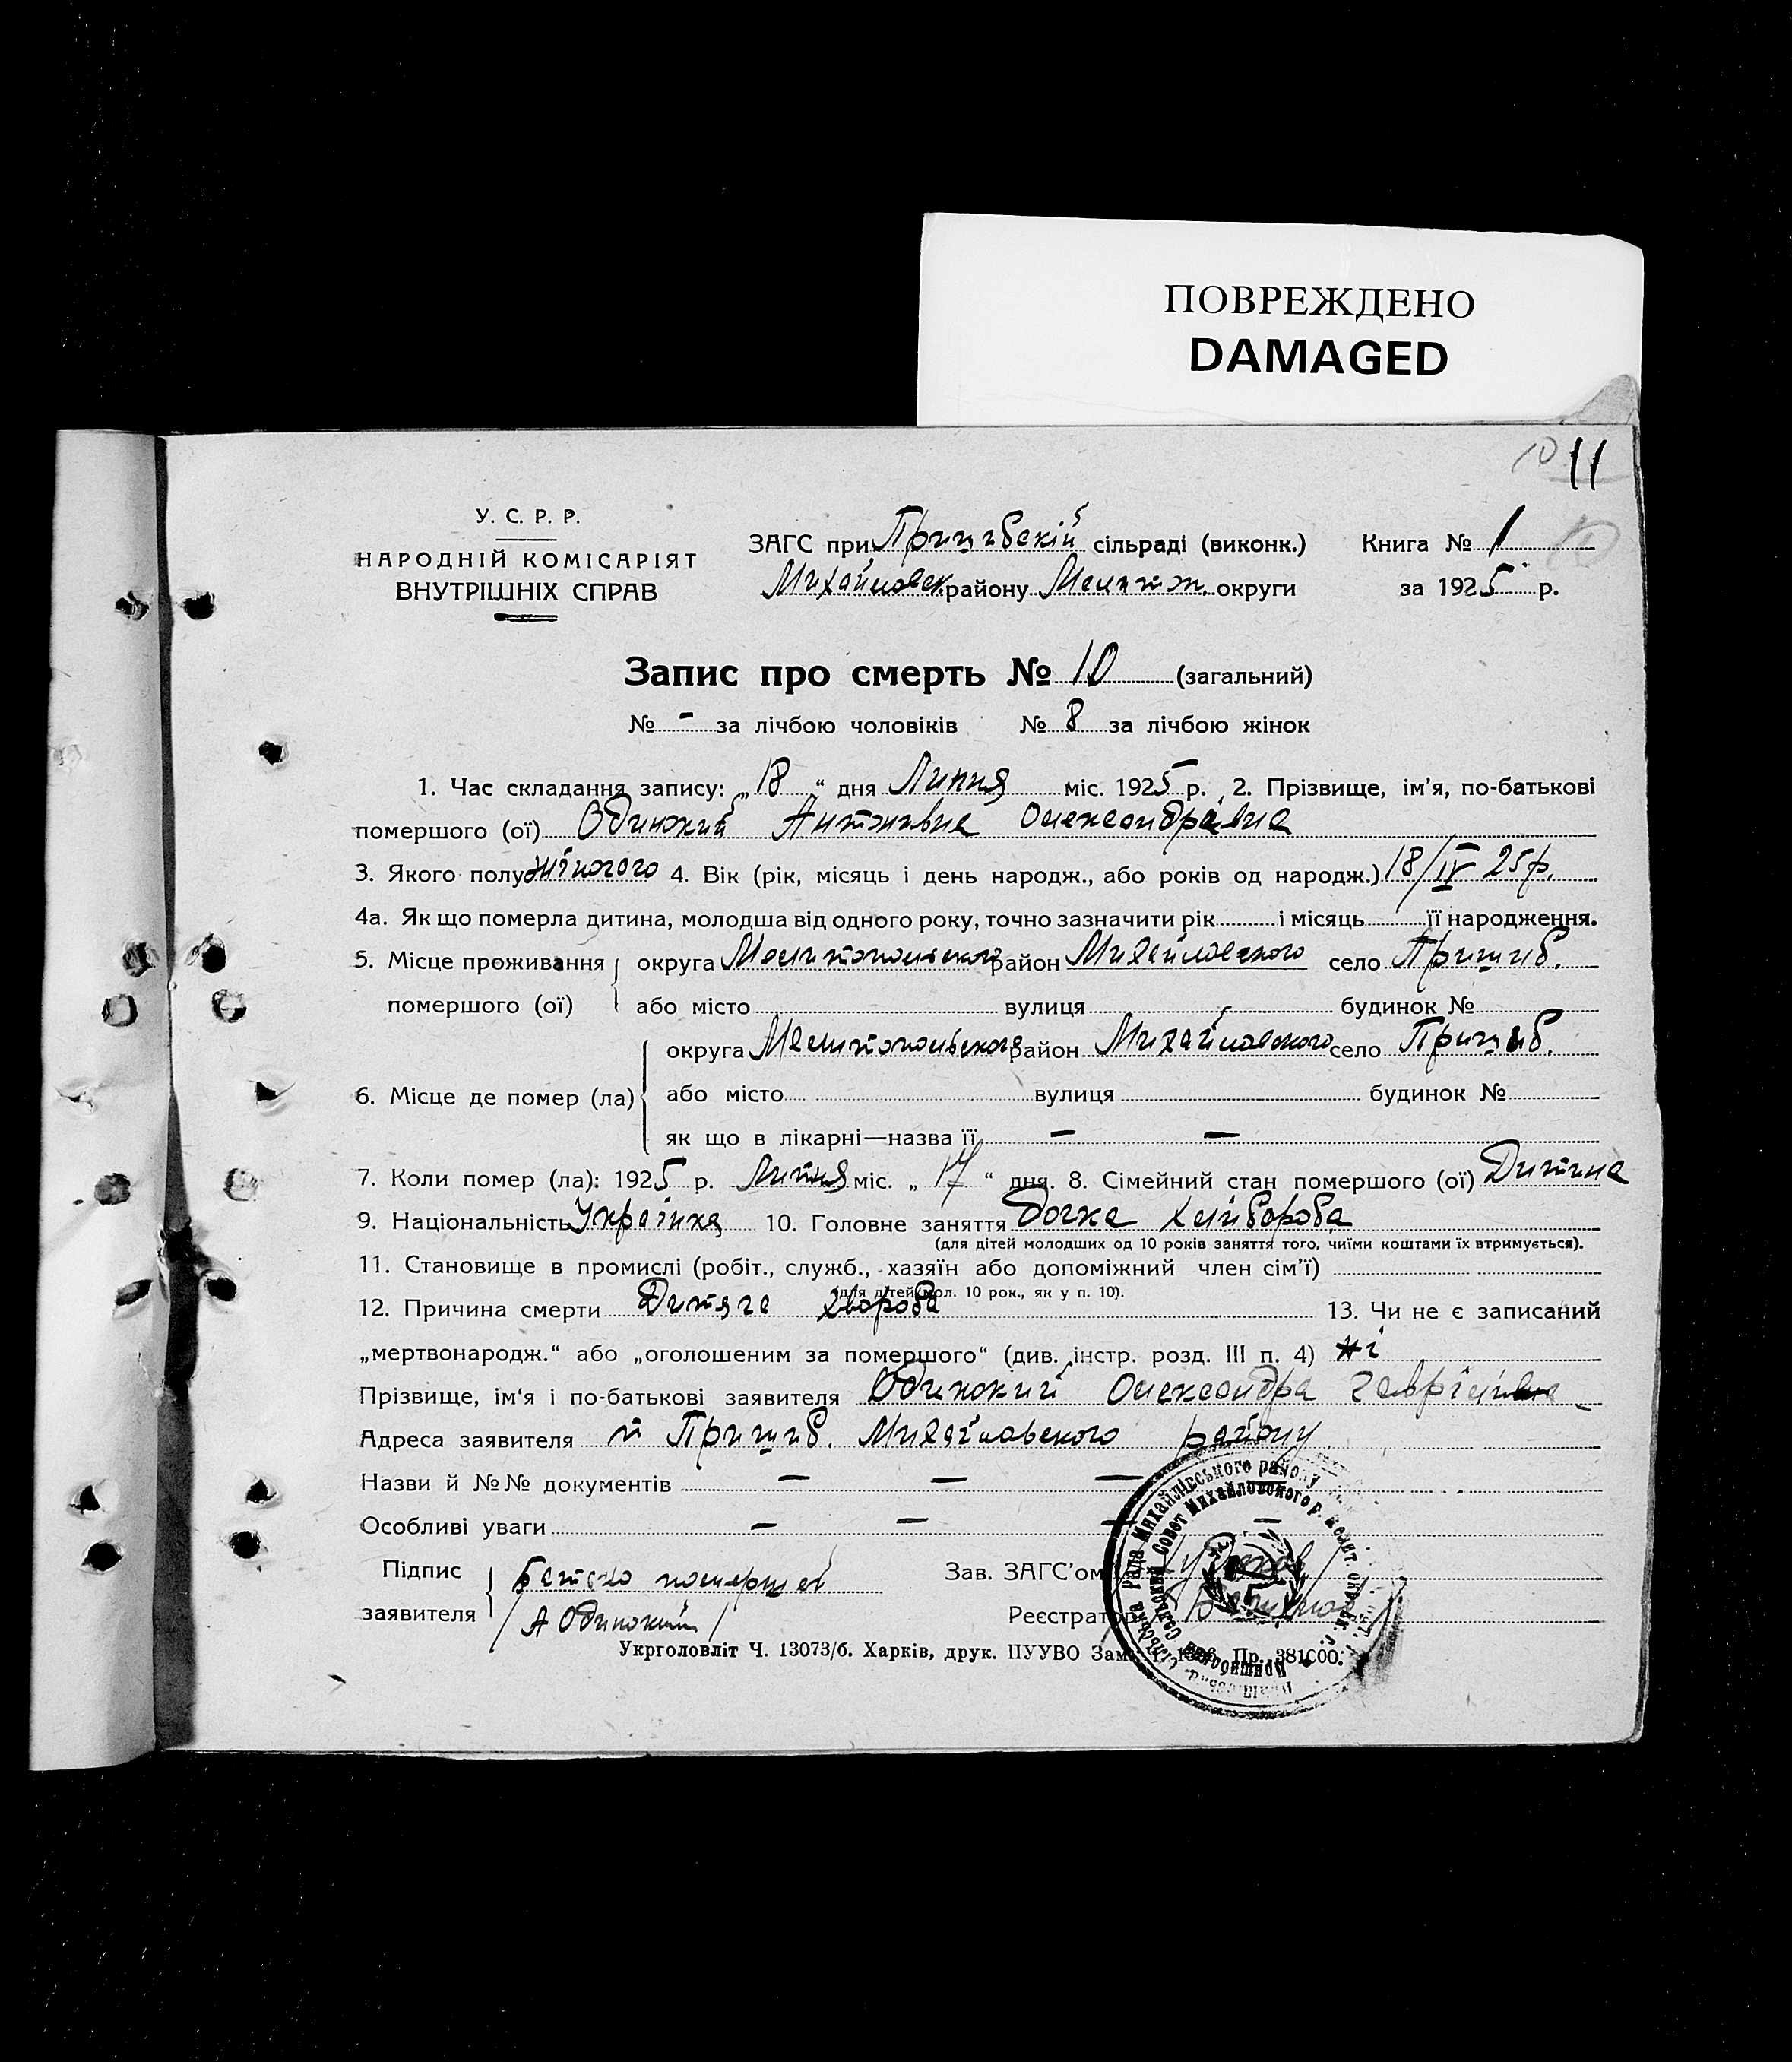 ПОВРЕЖДЕНО
DAMAGED
10 11
У. С. Р. Р.
НАРОДНІЙ КОМІСАРІЯТ
ВНУТРІШНІХ СПРАВ
ЗАГС при Пришибскій сільраді (виконк.) Книга № 1 10
Михайловск. району Мелитоп. округи за 1925 р.
Запис про смерть № 10 (загальний)
№ - за лічбою чоловіків № 8 за лічбою жінок
1. Час складання запису: „18“ дня Липня міс. 1925 р. 2. Прізвище, ім'я, по-батькові
помершого (ої) Одинокий Антонивна Олександрівна
3. Якого полу жіночого 4. Вік (рік, місяць і день народж., або років од народж.) 18/IV 25р.
4а. Як що померла дитина, молодша від одного року, точно зазначити рік і місяць її народження.
5. Місце проживання округа Мелитопольского район Михайловского село Пришиб.
помершого (ої) або місто вулиця будинок №
округа Мелитопольского район Михайловского село Пришиб.
6. Місце де помер (ла) або місто вулиця будинок №
як що в лікарні—назва її — —
7. Коли помер (ла): 1925 р. Липня міс. „17“ дня. 8. Сімейний стан помершого (ої) Дитина
9. Національність Українка 10. Головне заняття Дочка хлібороба
(для дітей молодших од 10 років заняття того, чиїми коштами їх втримується).
11. Становище в промислі (робіт., служб., хазяїн або допоміжний член сім'ї)
(для дітей мол. 10 рок., як у п. 10).
12. Причина смерти Дитяча хвороба 13. Чи не є записаний
„мертвонародж.“ або „оголошеним за помершого“ (див. інстр. розд. III п. 4) ні
Прізвище, ім'я і по-батькові заявителя Одинокий Олександра
Адреса заявителя Пришиб. Михайловского району
Назви й №№ документів — — —
Особливі уваги — — — —
Підпис Батько помершей Зав. ЗАГС'ом
заявителя /А Одинокий/ Реєстратор
Укрголовліт Ч. 13073/б. Харків, друк. ПУУВО Зам. Пр. 381000.
Рада Михайлівського району
Сельский Совет Михайловского р. Мелит. окр.